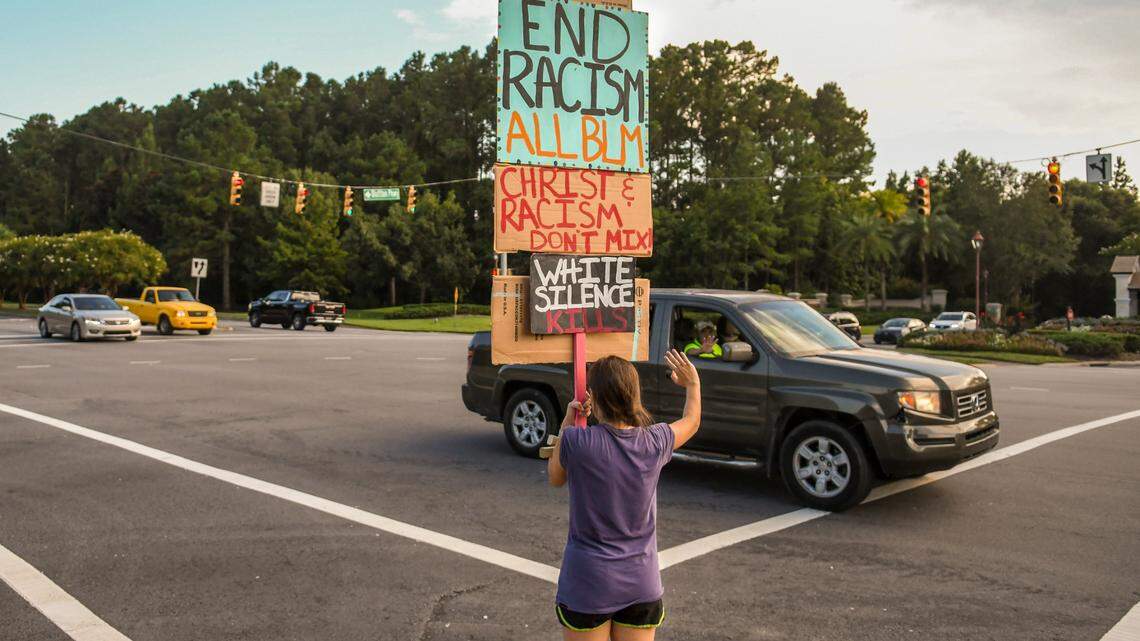 END
RACISM
ALL BLM
CHRIST &
RACISM
DON'T MIX!
WHITE
SILENCE
KILLS